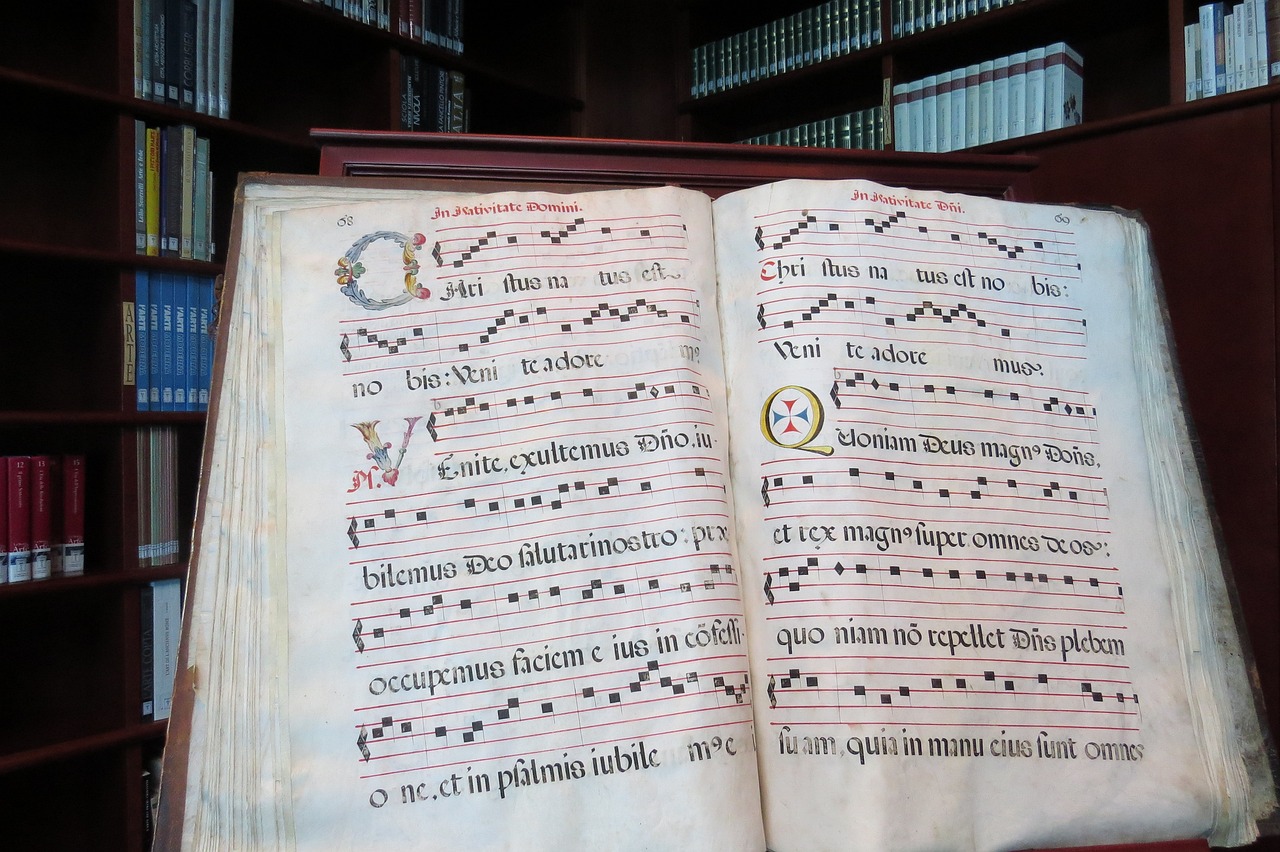 68
In Nativitate Domini.
CHri stus na tus est
no bis: Veni te adore m9
Ps.
VEnite, exultemus Dño, iu-
bilemus Deo salutarinostro: præ
occupemus faciem e ius in cõfessi-
o ne, et in psalmis iubile m9 e
69
In Nativitate Dñi.
Chri stus na tus est no bis:
Veni te adore mus.
Quoniam Deus magn9 Doñs,
et rex magn9 super omnes deos:
quo niam nõ repellet Dñs plebem
su am, quia in manu eius sunt omnes
ARTE
L'ARTE
L'ARTE
L'ARTE
L'ARTE
L'ARTE
12
13